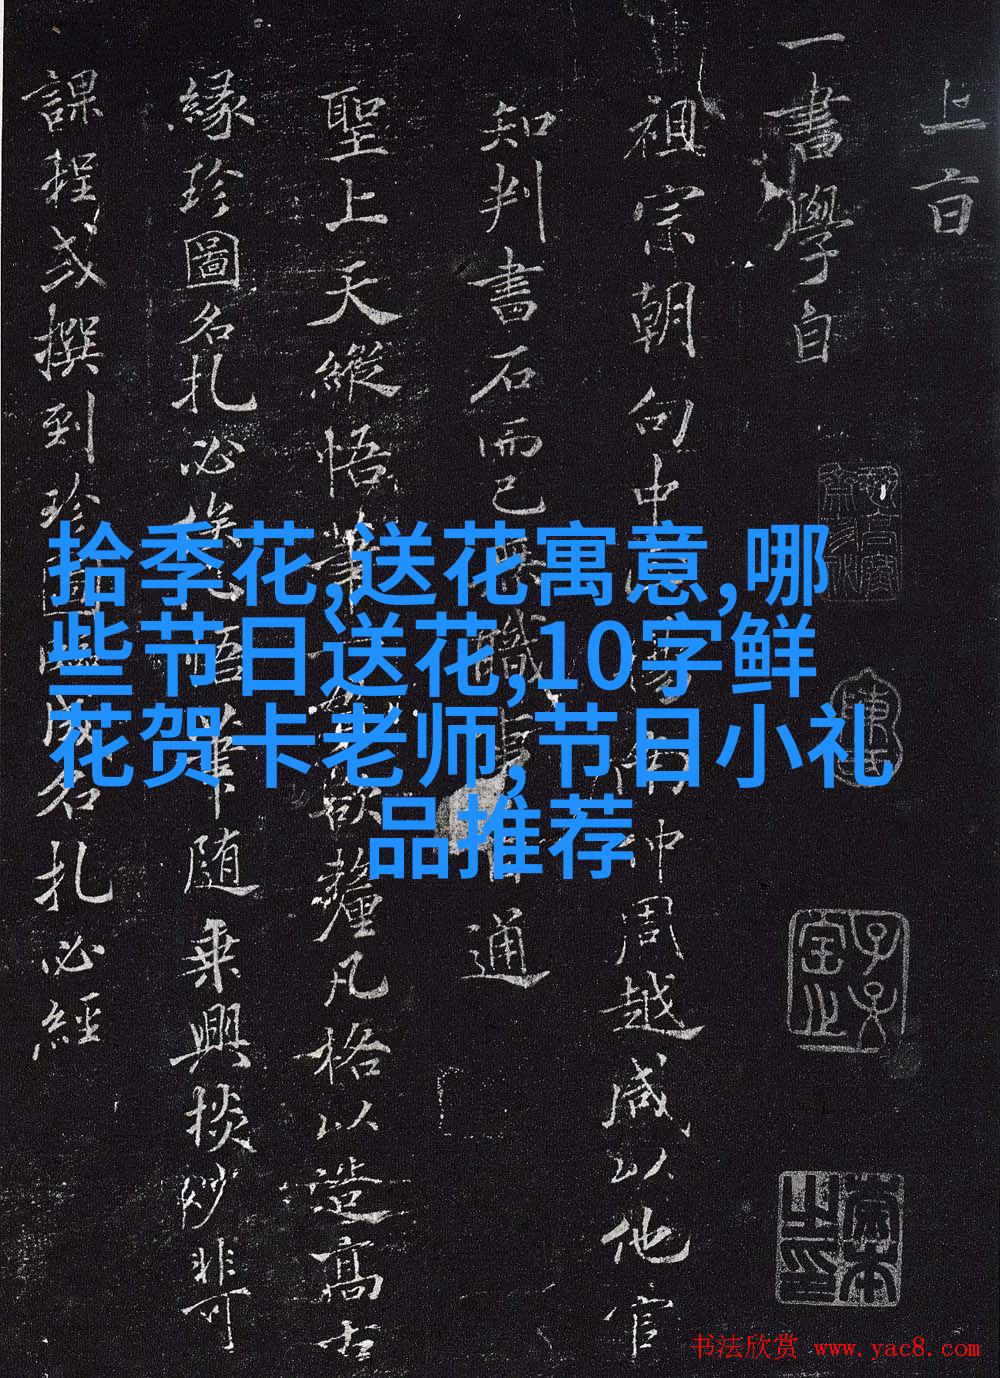 上 言
一書學自
祖宗朝向中
仲周越咸以他官
知判書石而已
職
通
聖上天縱悟
欲釐凡格以造高古
緣珍圖名札必
隨乗興掞妙非可
課程或撰到珍圖
名札必經
拾季花,送花寓意,哪
些节日送花,10字鲜
花贺卡老师,节日小礼
品推荐
书法欣赏 www.yac8.com